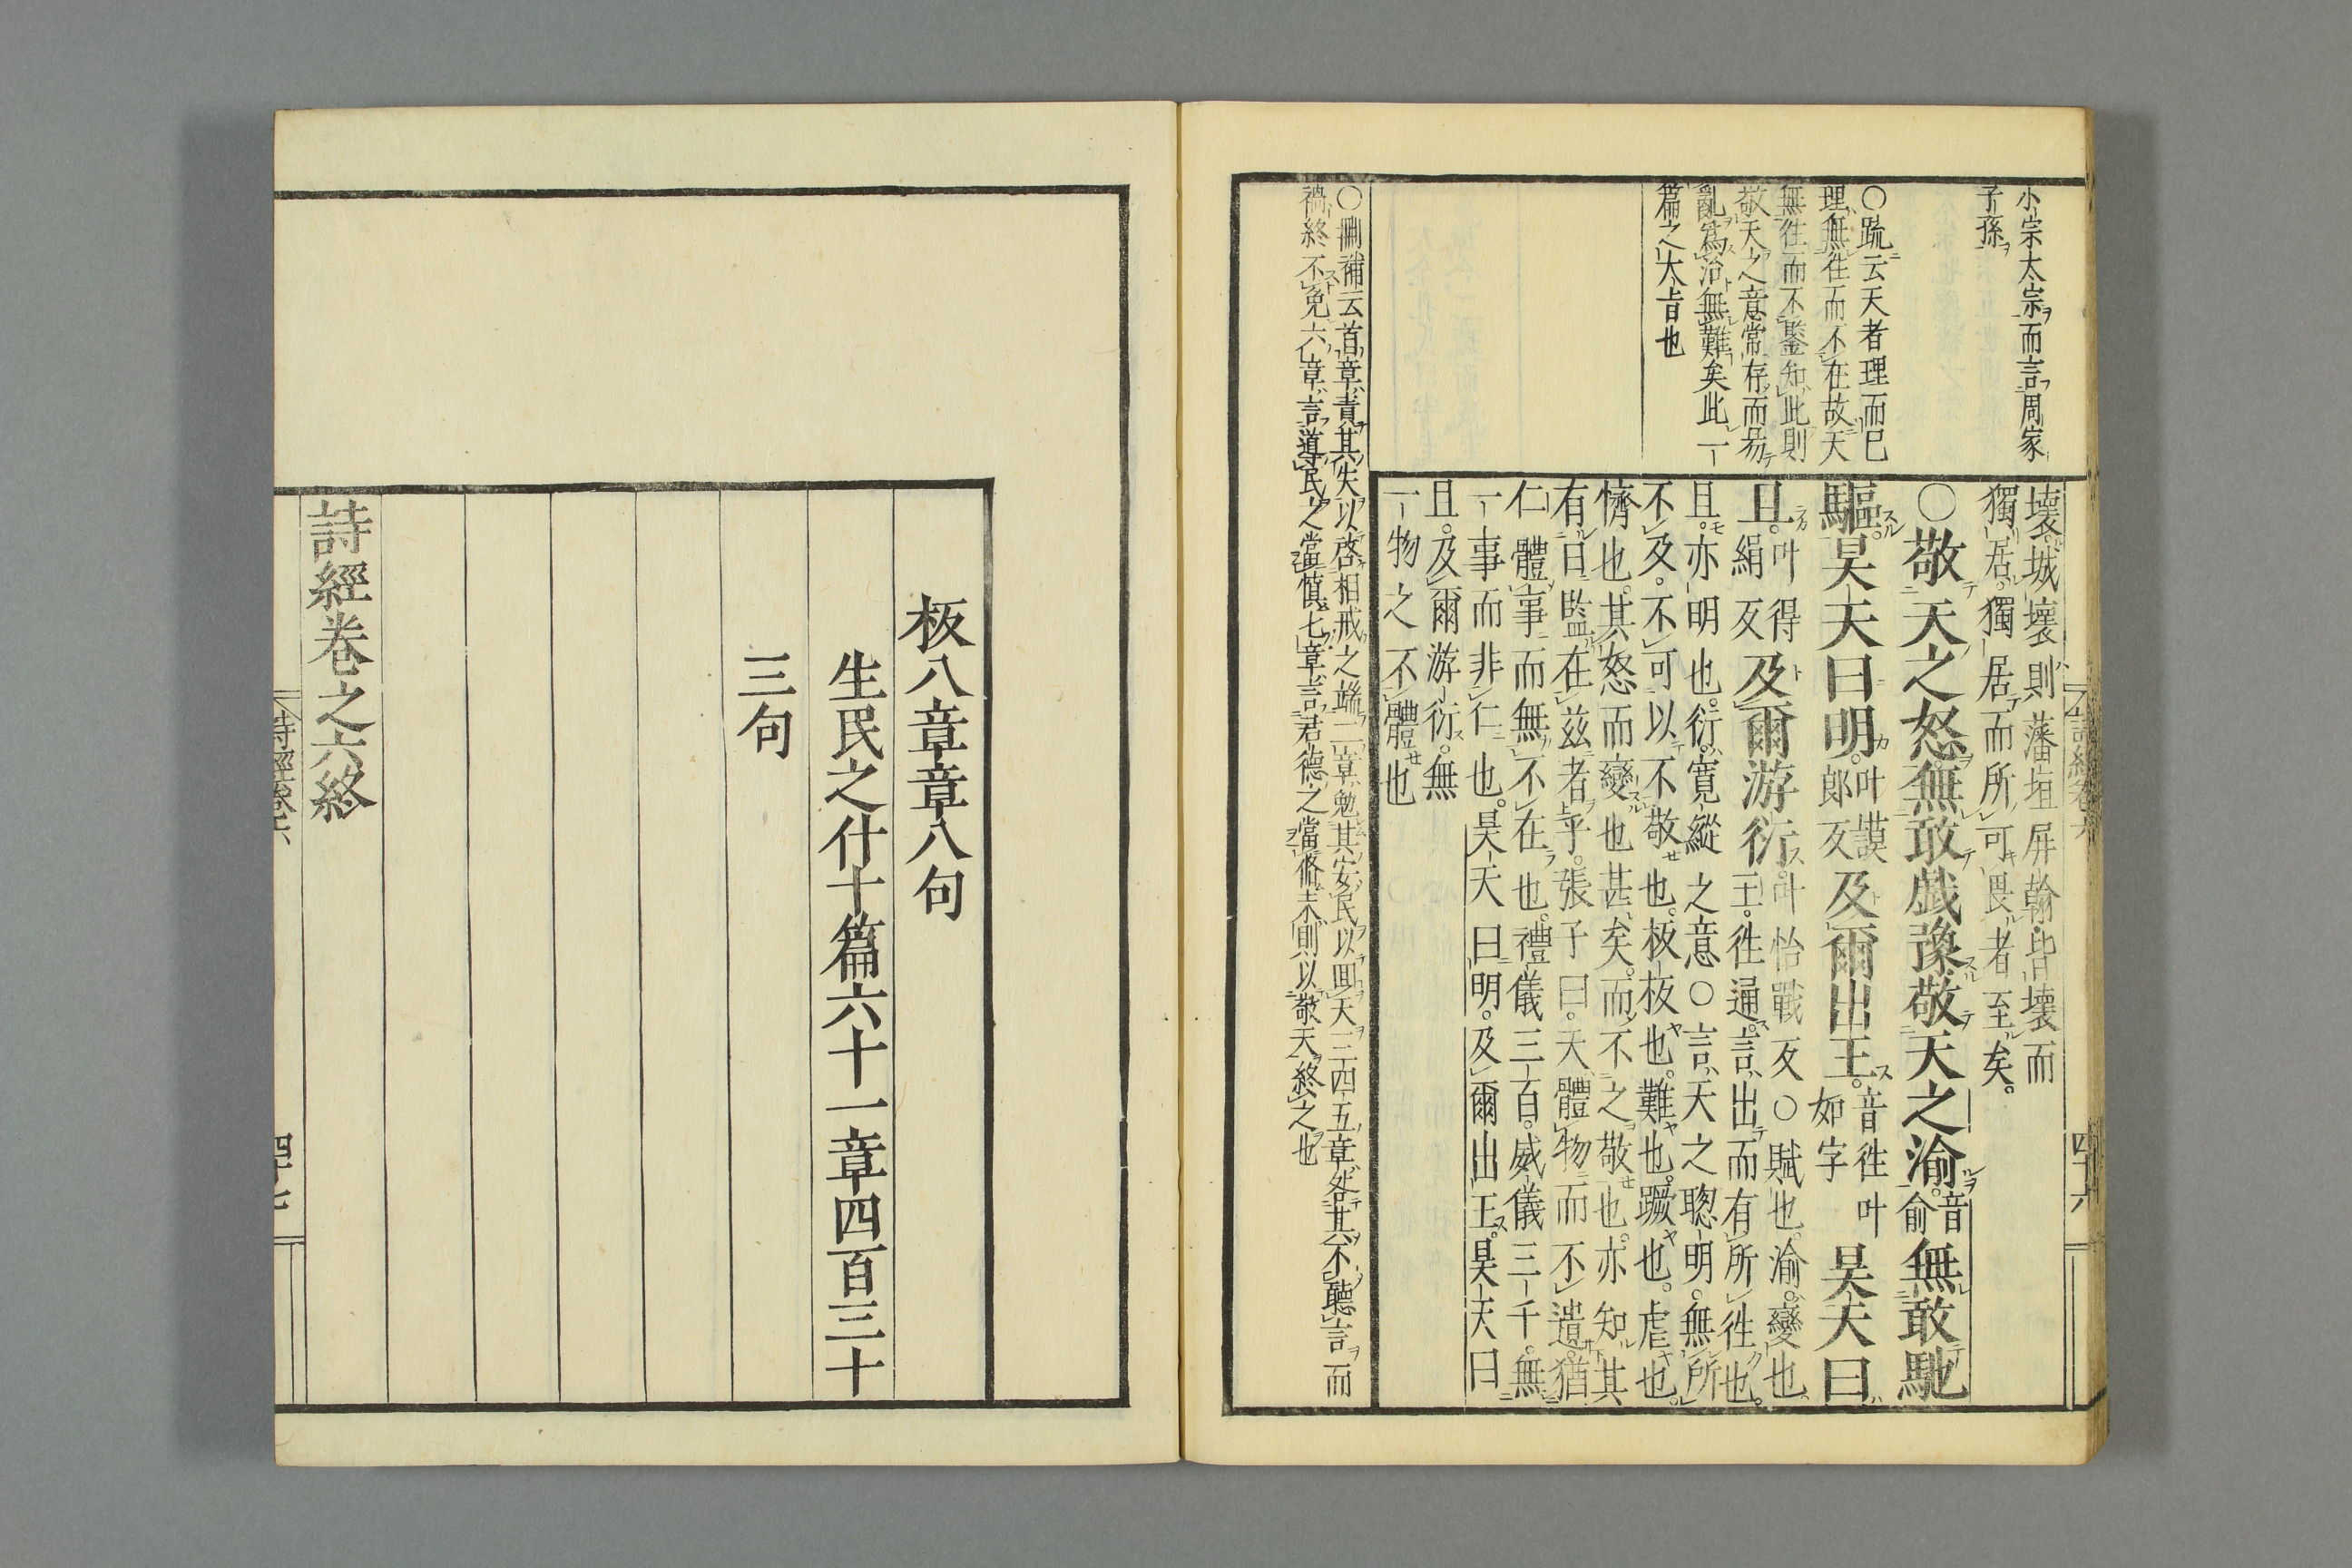 小宗太宗而言周家
子孫
○疏云天者理而已
理無徃而不在故天
無徃而不鑒知此則
敬天之意常存而易
亂爲治無難矣此一
篇之大旨也
壞城壞則藩垣屏翰皆壞而
獨居獨居而所可畏者至矣
○敬天之怒無敢戲豫敬天之渝音俞無敢馳
驅昊天曰明叶謨郎反及爾出王音徃叶如字昊天曰
旦叶得絹反及爾游衍叶怡戰反○賦也渝變也
王徃通言出而有所徃也
旦亦明也衍寬縱之意○言天之聰明無所
不及不可以不敬也板板也難也蹶也虐也
懠也其怒而變也甚矣而不之敬也亦知其
有日監在玆者乎張子曰天體物而不遺猶
仁體事而無不在也禮儀三百威儀三千無
一事而非仁也昊天曰明及爾出王昊天曰
旦及爾游衍無
一物之不體也
○刪補云首章責其失以啓相戒之端二章勉其安民以囬天三四五章咎其不聽言而
禍終不免六章言導民之當慎七章言君德之當脩末則以敬天終之也
詩經卷六
四十六
板八章章八句
生民之什十篇六十一章四百三十
三句
詩經卷之六終
詩經卷六
四十七